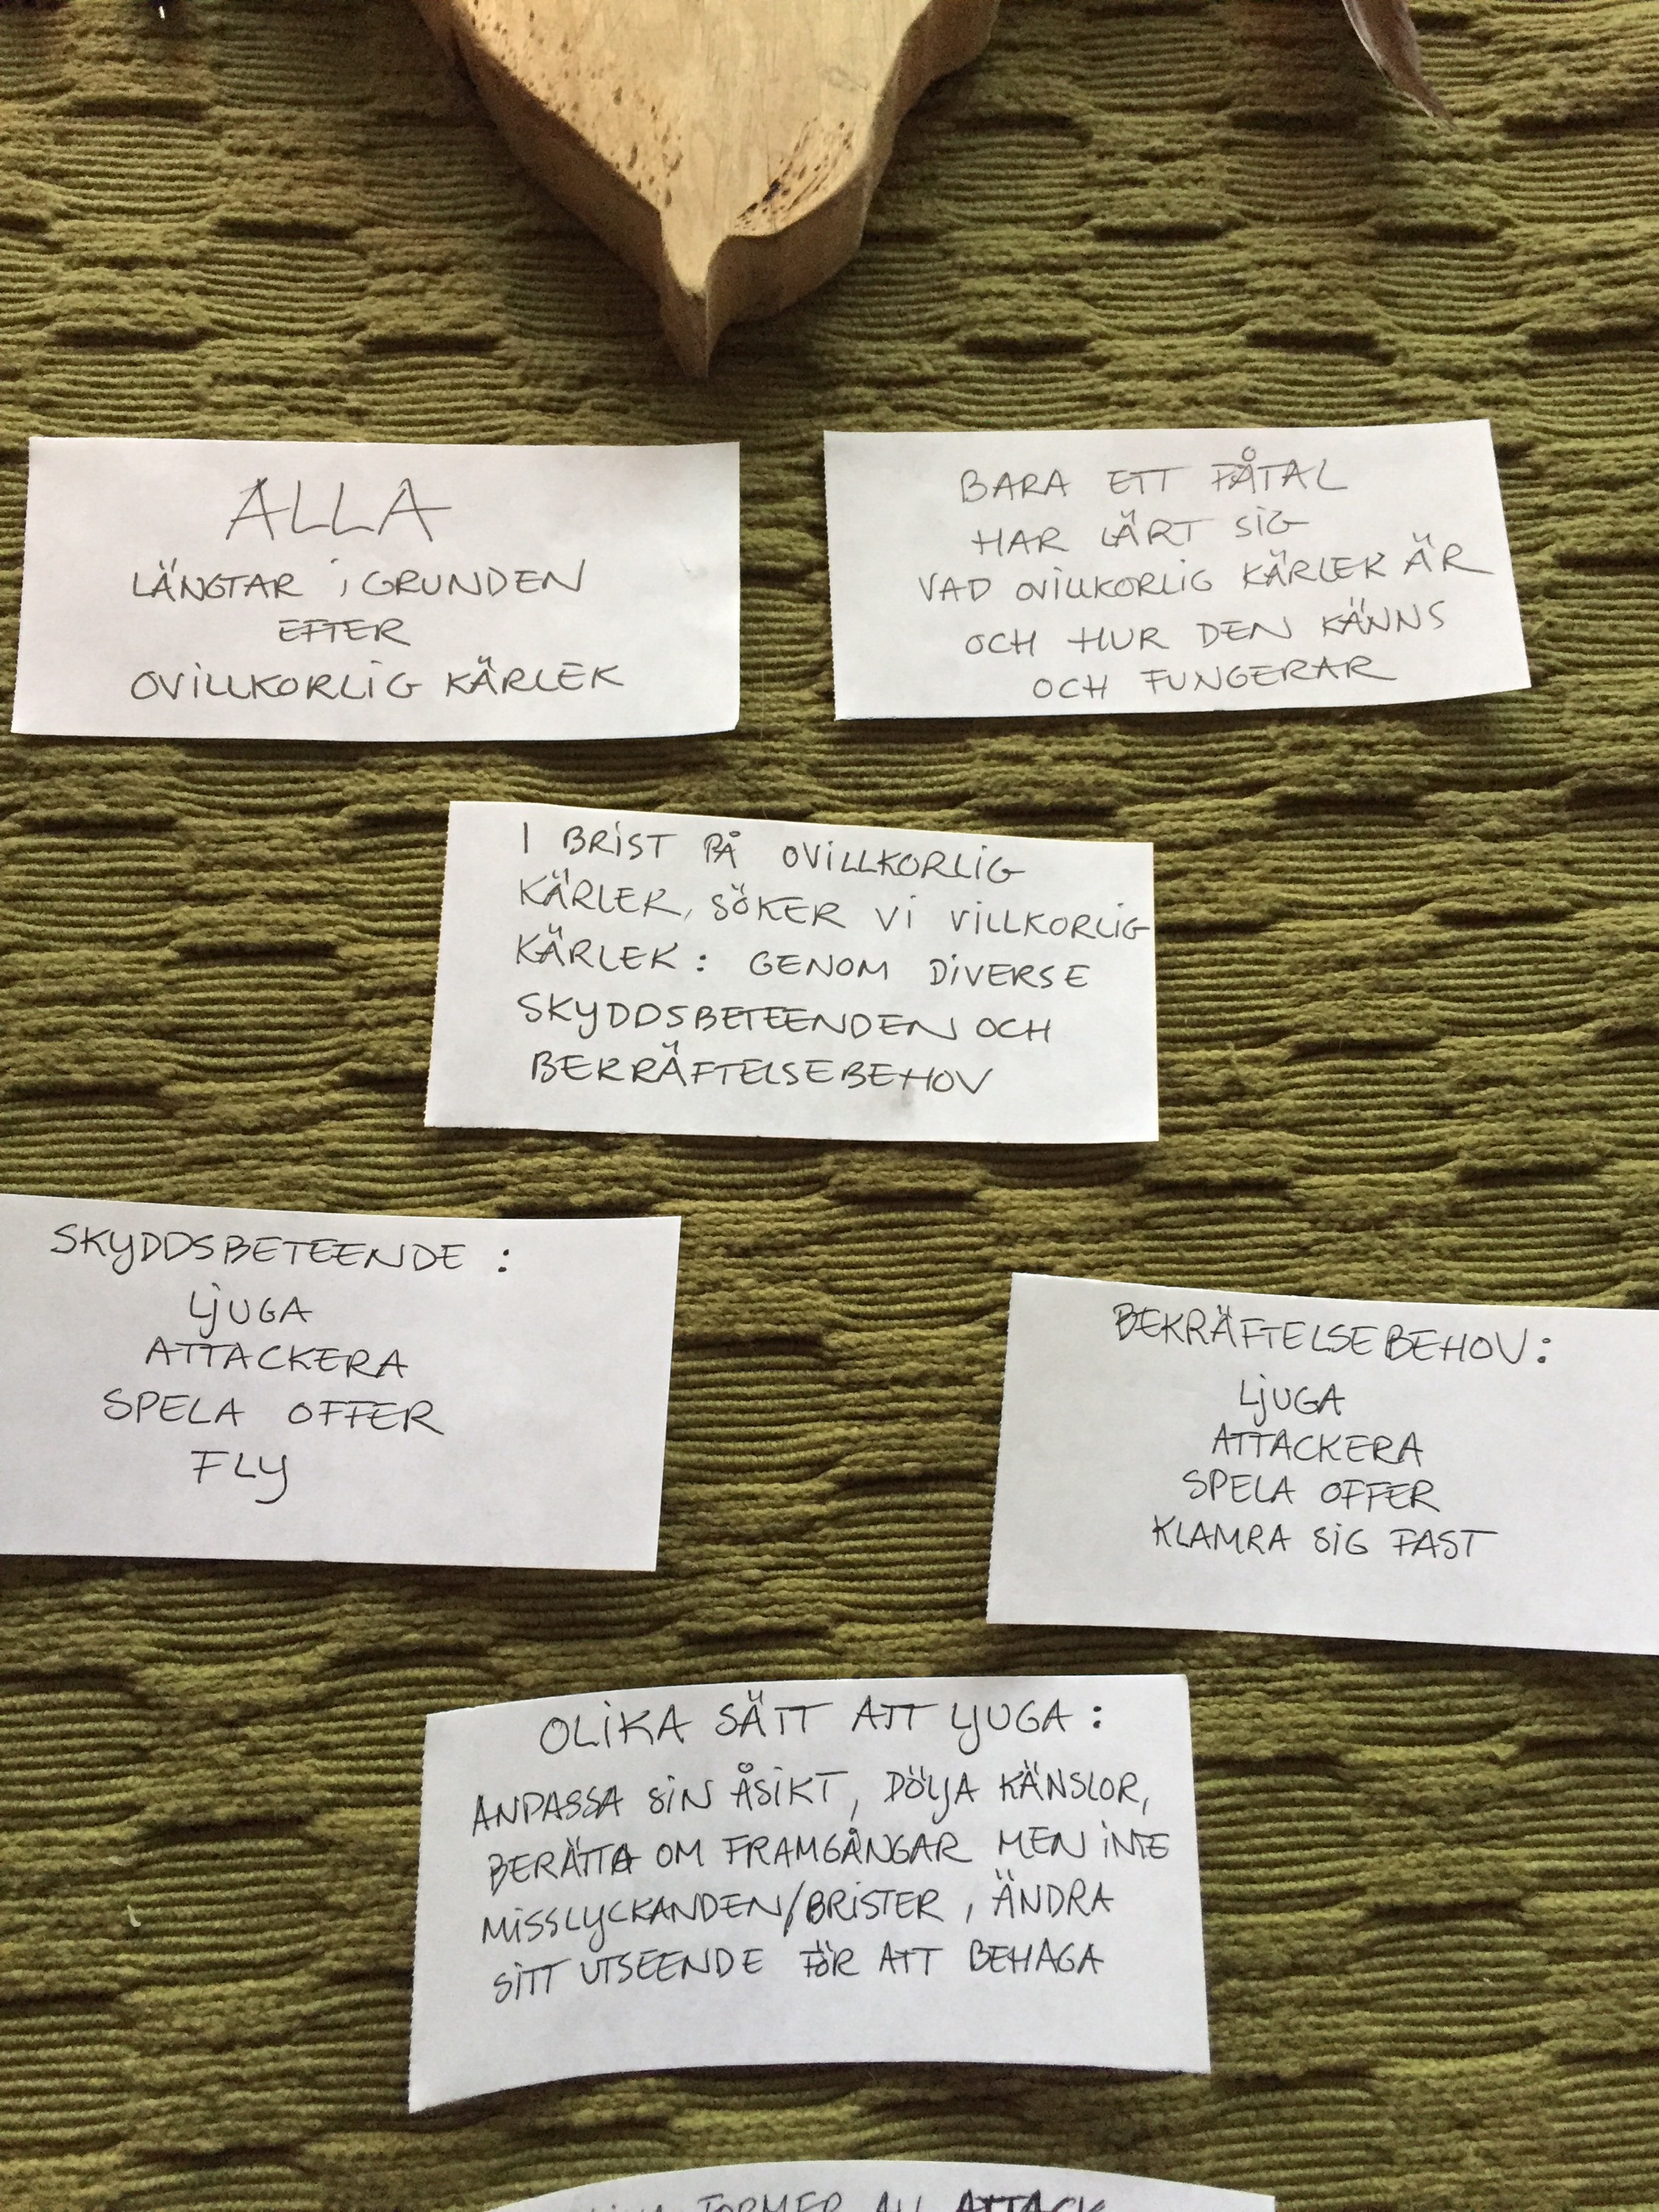 ALLA
LÄNGTAR i GRUNDEN
EFTER
OVILLKORLIG KÄRLEK
BARA ETT FÅTAL
HAR LÄRT SIG
VAD OVILLKORLIG KÄRLEK ÄR
OCH HUR DEN KÄNNS
OCH FUNGERAR
I BRIST PÅ OVILLKORLIG
KÄRLEK, SÖKER VI VILLKORLIG
KÄRLEK: GENOM DIVERSE
SKYDDSBETEENDEN OCH
BEKRÄFTELSEBEHOV
SKYDDSBETEENDE:
LJUGA
ATTACKERA
SPELA OFFER
FLY
BEKRÄFTELSEBEHOV:
LJUGA
ATTACKERA
SPELA OFFER
KLAMRA SIG FAST
OLIKA SÄTT ATT LJUGA:
ANPASSA SIN ÅSIKT, DÖLJA KÄNSLOR,
BERÄTTA OM FRAMGÅNGAR MEN INTE
MISSLYCKANDEN/BRISTER, ÄNDRA
SITT UTSEENDE FÖR ATT BEHAGA
FORMER AV ATTACK